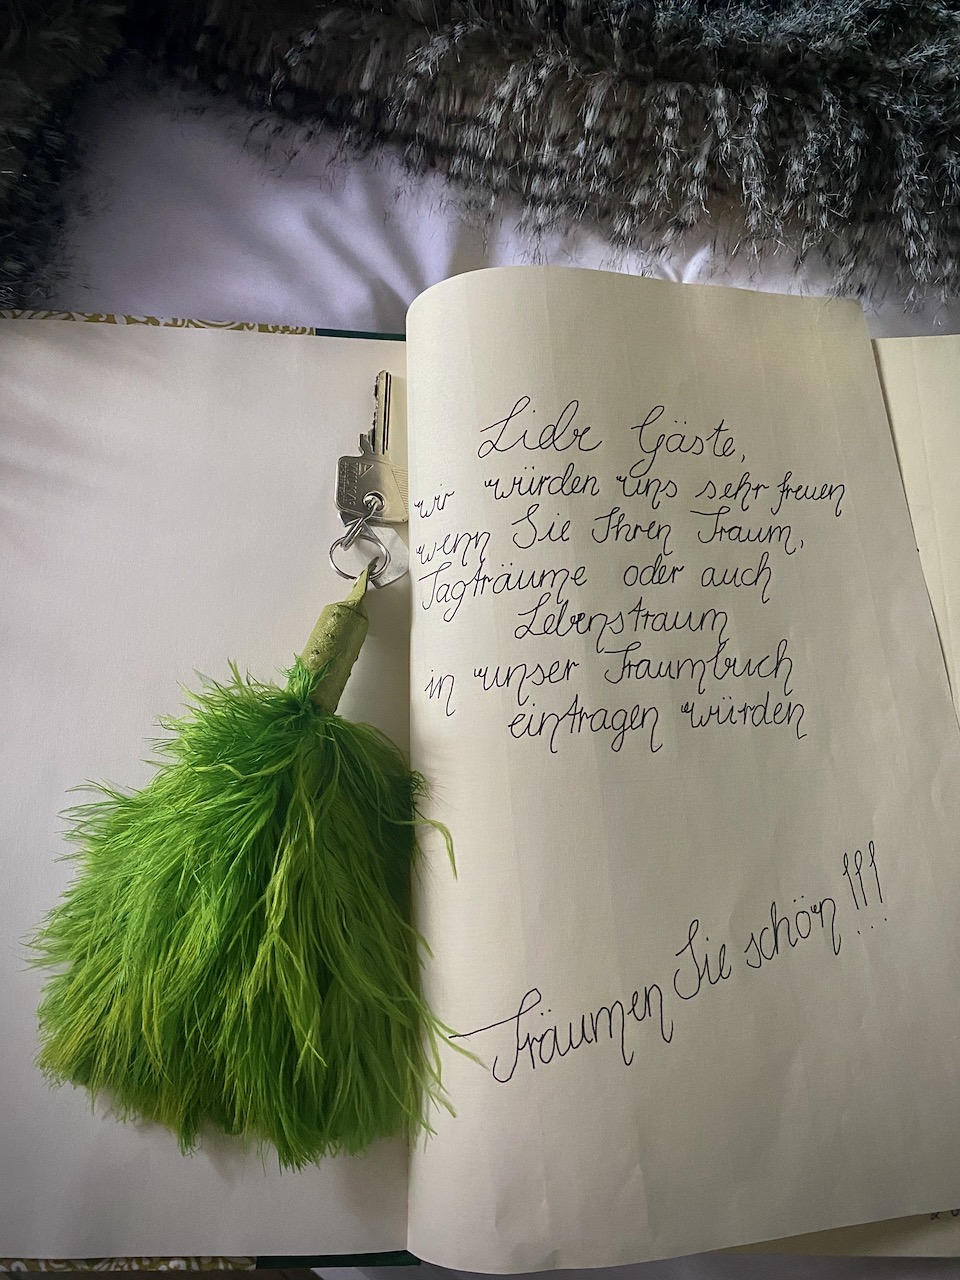 Liebe Gäste,
wir würden uns sehr freuen
wenn Sie Ihren Traum,
Tagträume oder auch
Lebenstraum
in unser Traumbuch
eintragen würden
Träumen Sie schön !!!